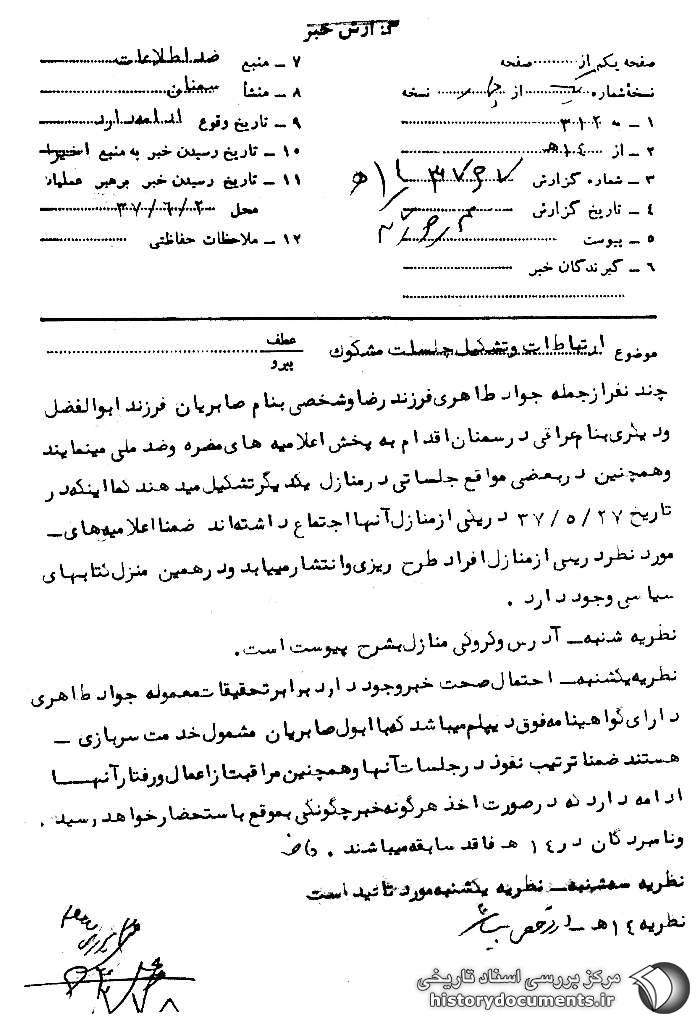 گزارش خبر
صفحه یکم از ........ صفحه
نسخه شماره ........ از ........ نسخه
۱ ـ به ۳۱۲
۲ ـ از ۱۴ هـ
۳ ـ شماره گزارش
۴ ـ تاریخ گزارش
۵ ـ پیوست
۶ ـ گیرندگان خبر
۷ ـ منبع ضد اطلاعات
۸ ـ منشأ سمنان
۹ ـ تاریخ وقوع ادامه دارد
۱۰ ـ تاریخ رسیدن خبر به منبع اخیرا
۱۱ ـ تاریخ رسیدن خبر برهبر عملیات
محل ۳۷/۶/۲
۱۲ ـ ملاحظات حفاظتی
موضوع ارتباطات و تشکیل جلسات مشکوک
عطف
پیرو
چند نفر از جمله جواد طاهری فرزند رضا و شخصی بنام صابریان فرزند ابوالفضل
و دیگری بنام عراقی در سمنان اقدام به پخش اعلامیه های مضره و ضد ملی مینمایند
و همچنین در بعضی مواقع جلساتی در منازل یکدیگر تشکیل میدهند کما اینکه در
تاریخ ۳۷/۵/۲۷ در یکی از منازل آنها اجتماع داشته‌اند ضمنا اعلامیه های ـ
مورد نظر در یکی از منازل افراد طرح ریزی و انتشار مییابد و در همین منزل کتابهای
سیاسی وجود دارد .
نظریه شنبه ـ آدرس و کروکی منازل بشرح پیوست است.
نظریه یکشنبه ـ احتمال صحت خبر وجود دارد برابر تحقیقات معموله جواد طاهری
دارای گواهینامه فوق دیپلم میباشد که با ابول صابریان مشمول خدمت سربازی ـ
هستند ضمنا ترتیب نفوذ در جلسات آنها و همچنین مراقبت از اعمال و رفتار آنهـــا
ادامه دارد که در صورت اخذ هرگونه خبر چگونگی بموقع باستحضار خواهد رسید .
و نامبردگان در ۱۴ هـ فاقد سابقه میباشند .
نظریه سه‌شنبه ـ نظریه یکشنبه مورد تائید است
نظریه ۱۴ هـ ـ
مرکز بررسی اسناد تاریخی
historydocuments.ir